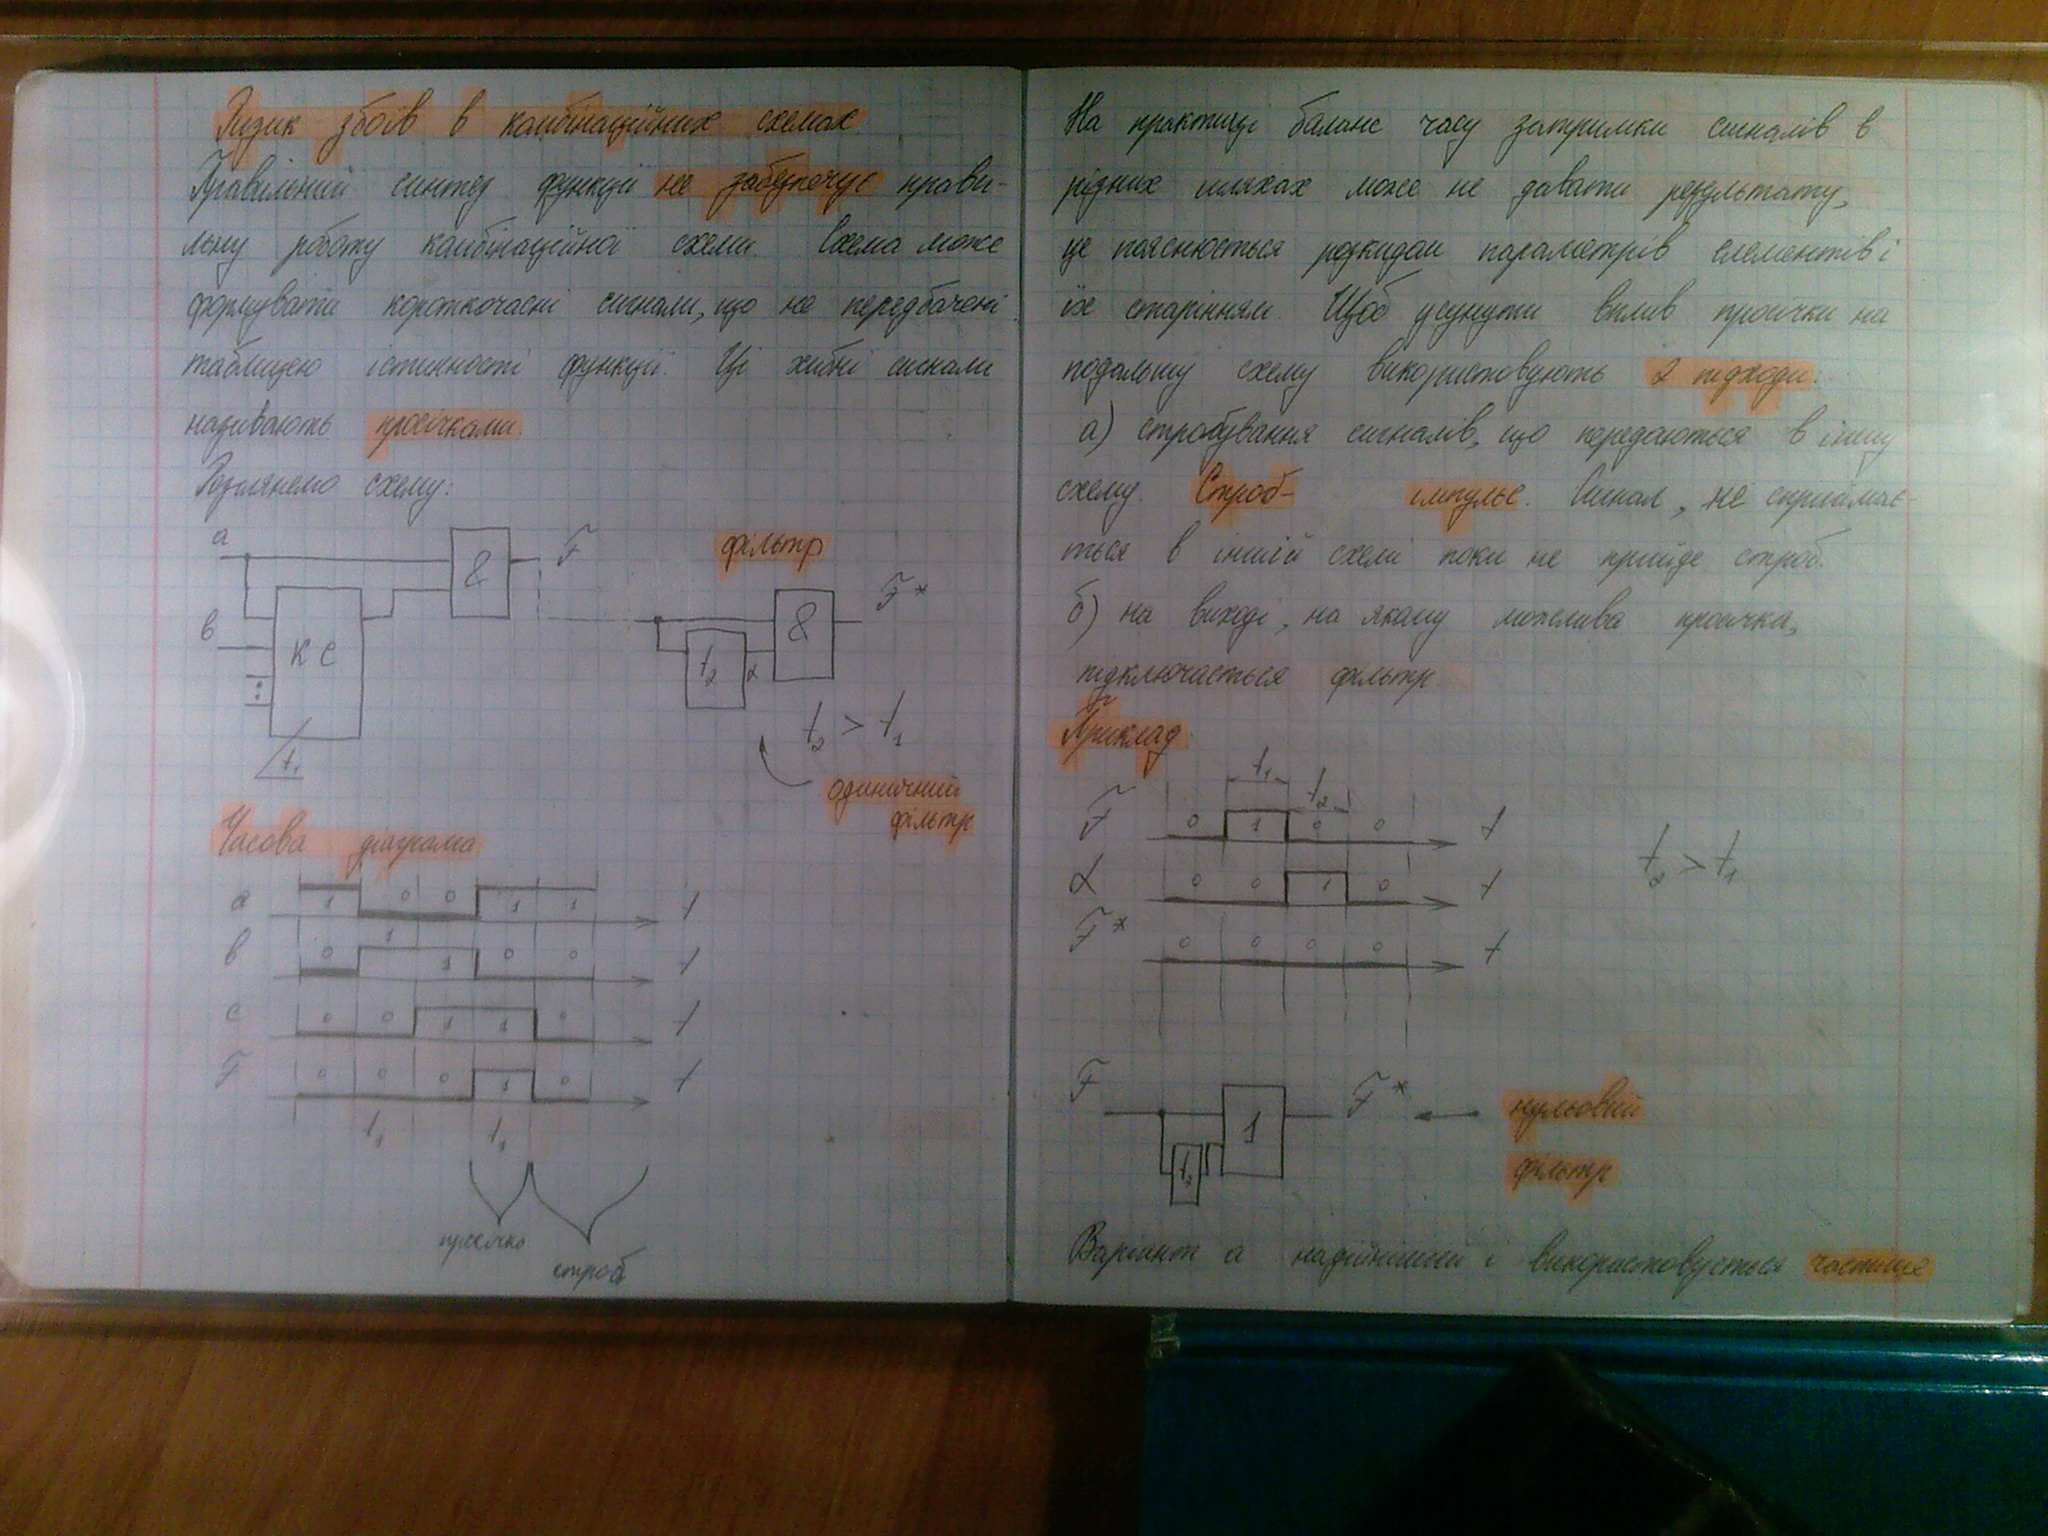 Ризик збоїв в комбінаційних схемах.
Правильний синтез функції не забезпечує прави-
льну роботу комбінаційної схеми. Схема може
формувати короткочасні сигнали, що не передбачені
таблицею істинності функції. Ці хибні сигнали
називають просічками.
Розглянемо схему:
a & F фільтр
в КС & F*
t₂ α
t₁ t₂ > t₁
одиничний
фільтр
Часова діаграма
a 1 0 0 1 1 t
b 0 1 1 0 0 t
c 0 0 1 1 0 t
F 0 0 0 1 0 t
t₁ t₁
просічка
строб
На практиці баланс часу затримки сигналів в
різних шляхах може не давати результату,
це пояснюється розкидом параметрів елементів і
їх старінням. Щоб усунути вплив просічки на
подальшу схему використовують 2 підходи:
а) стробування сигналів, що передаються в іншу
схему. Строб- імпульс. Сигнал, не сприймає-
ться в іншій схемі поки не прийде строб.
б) на виході, на якому можлива просічка,
підключається фільтр.
Приклад:
t₁
t₂
F 0 1 0 0 t
α 0 0 1 0 t
t₂ > t₁
F* 0 0 0 0 t
F 1 F* нульовий
t₂ фільтр
Варіант а надійніший і використовується частіше